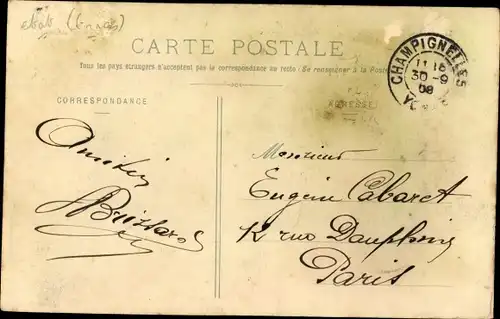 CARTE POSTALE
Tous les pays étrangers n'acceptent pas la correspondance au recto (Se renseigner à la Poste
CHAMPIGNELLES
30 -9
08
CORRESPONDANCE
ADRESSE
Monsieur
Eugène Cabaret
12 rue Dauphine
Paris
Amitiés